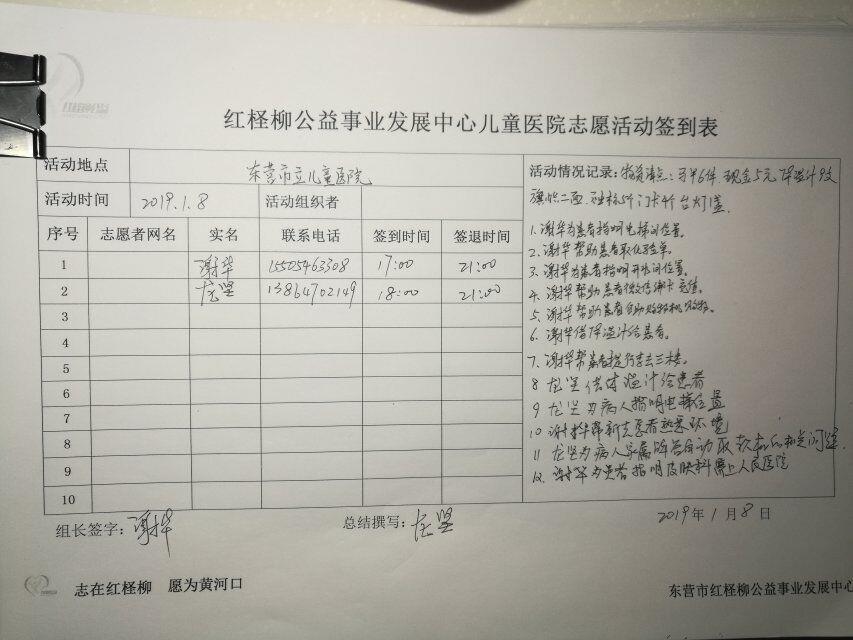 红柽柳公益事业发展中心儿童医院志愿活动签到表
活动地点 东营市立儿童医院
活动时间 2019.1.8 活动组织者
序号 志愿者网名 实名 联系电话 签到时间 签退时间
1 谢华 15505463308 17:00 21:00
2 龙坚 13864702149 18:00 21:00
3
4
5
6
7
8
9
10
活动情况记录: 物资清点: 马甲6件 现金5元 体温计9支
旗帜二面 门卡1个 台灯1盏
1. 谢华为患者指明电梯间位置。
2. 谢华帮助患者取化验单。
3. 谢华为患者指明开水间位置。
4. 谢华帮助患者微信绑卡充值。
5. 谢华帮助患者自助
6. 谢华借体温计给患者。
7. 谢华帮患者提行李去三楼。
8 龙坚借体温计给患者
9 龙坚为病人指明电梯位置
10 谢华带新患者熟悉环境
11 龙坚为病人家属解答自动取款机
12. 谢华为患者指明皮肤科需上人民医院
组长签字: 谢华
总结撰写: 龙坚
2019年1月8日
志在红柽柳 愿为黄河口
东营市红柽柳公益事业发展中心